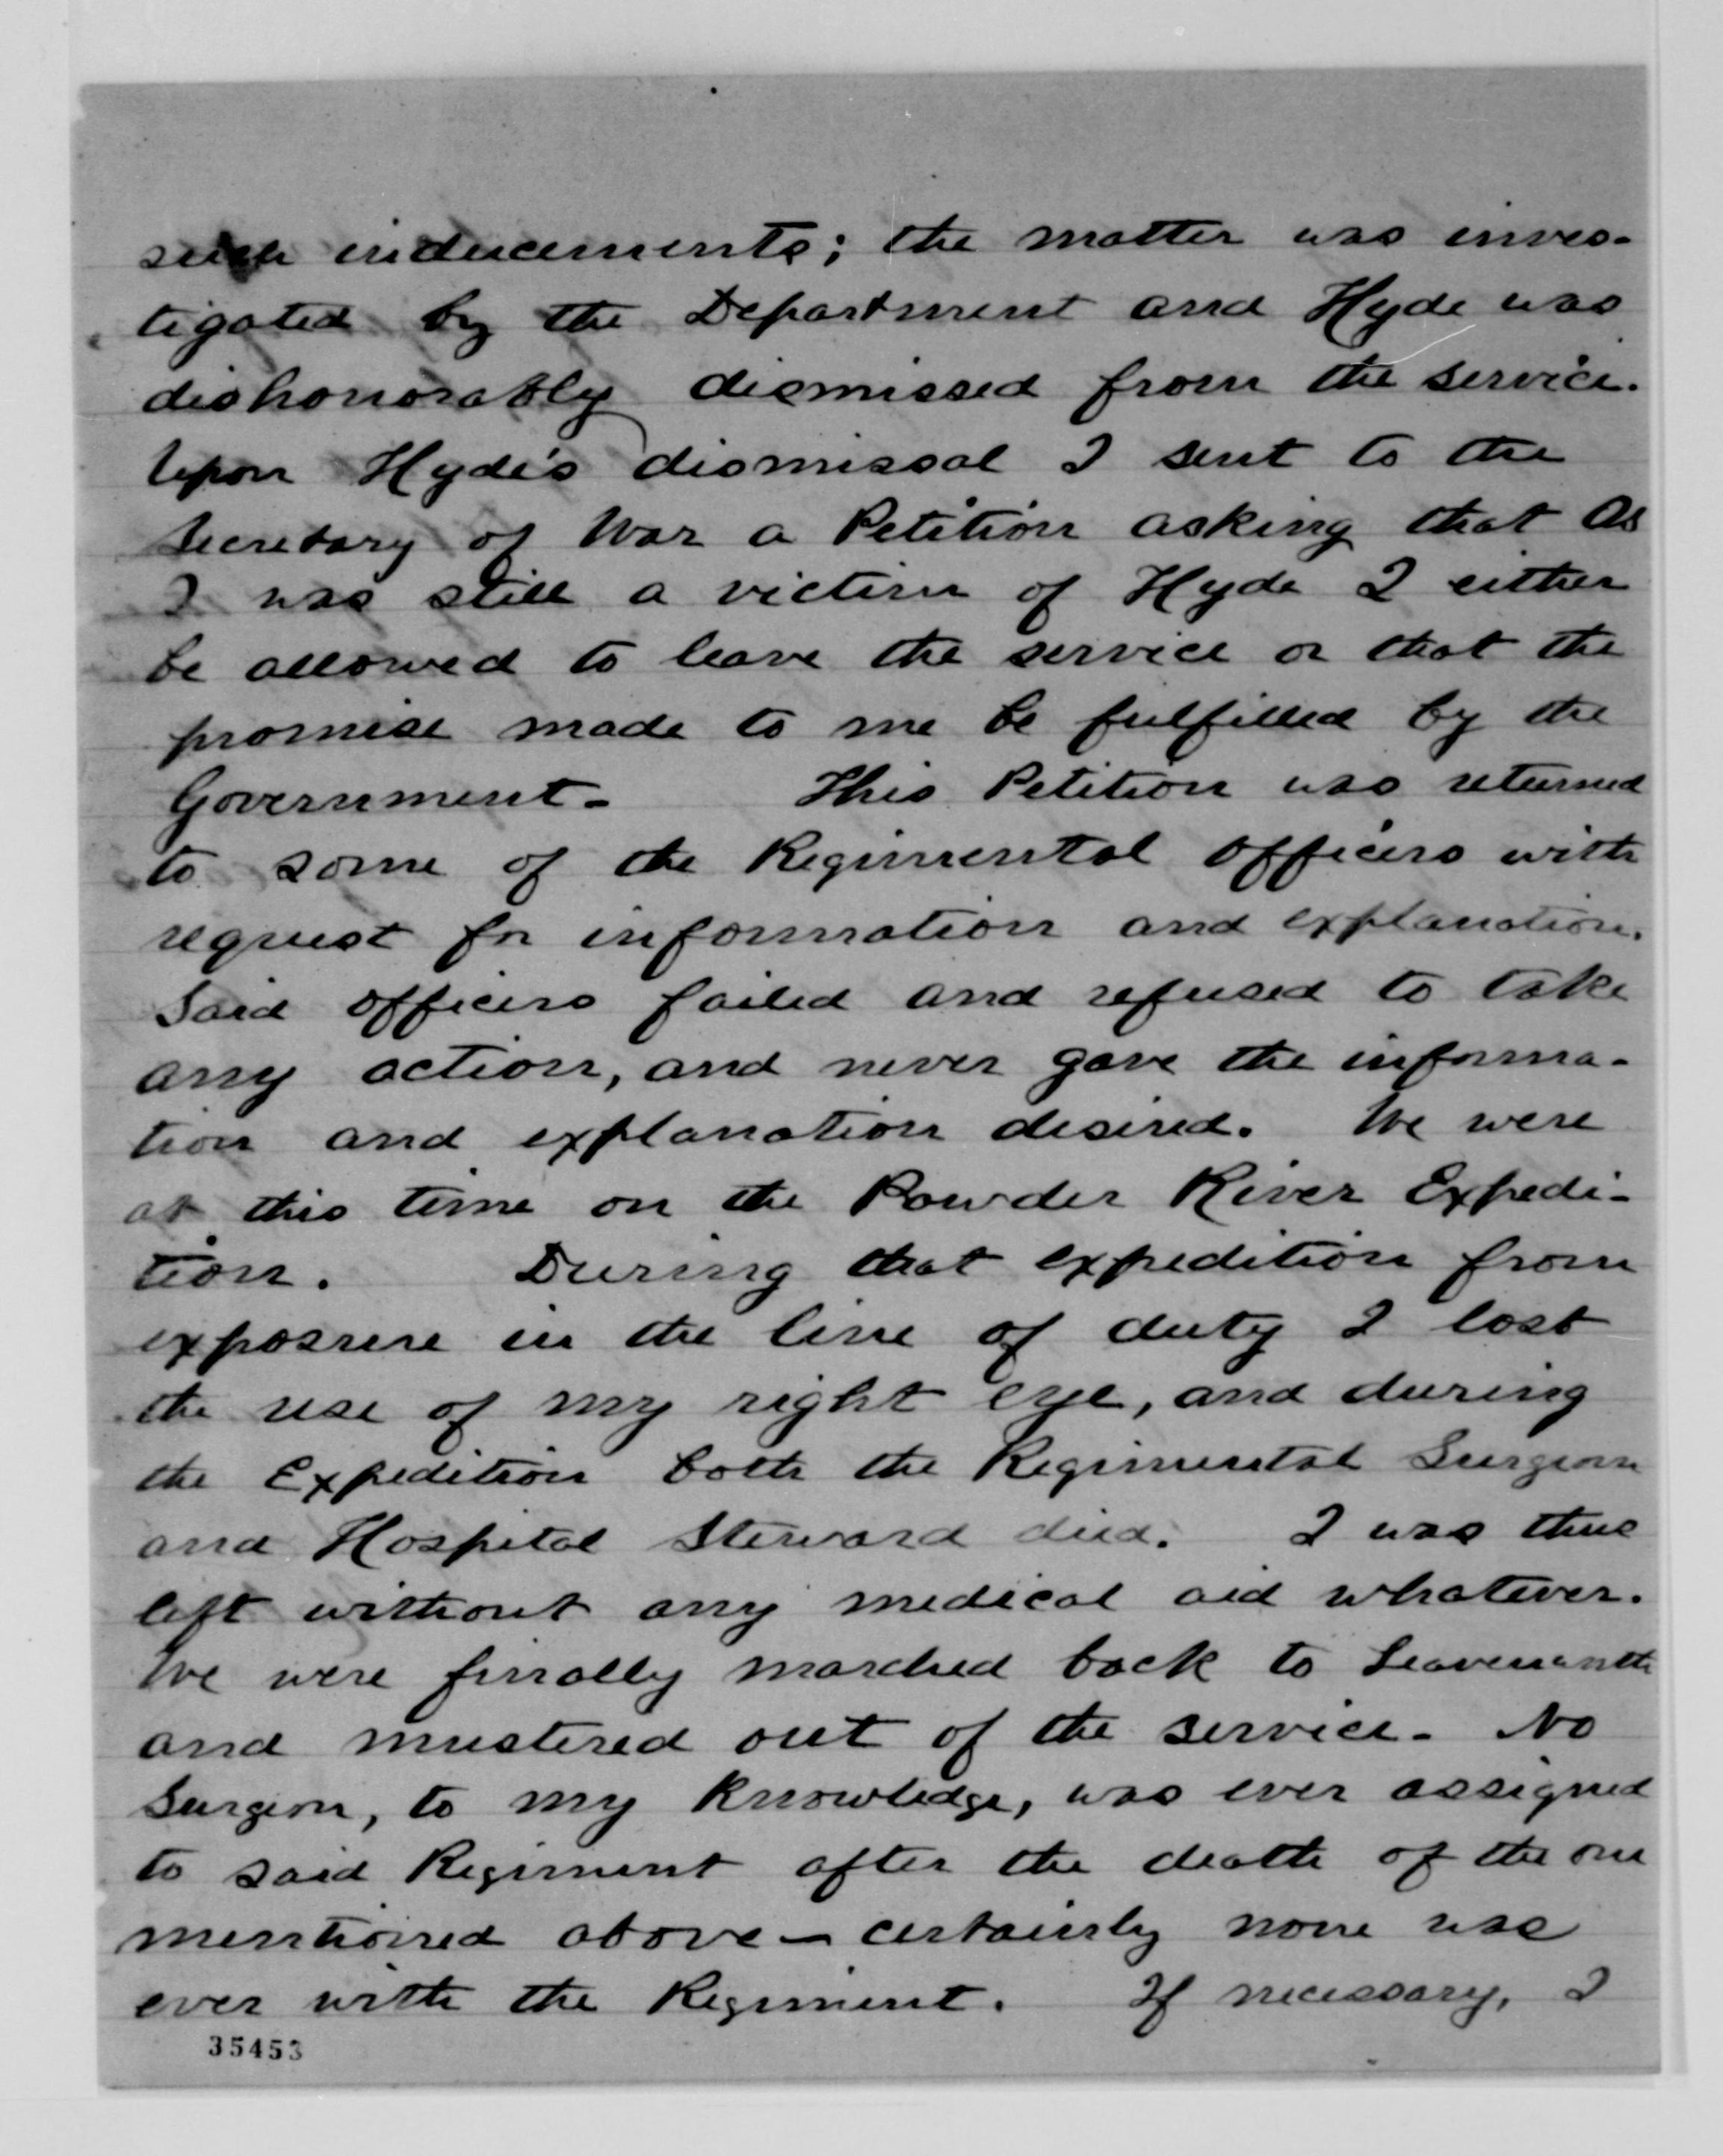 such inducements; the matter was inves-
tigated by the Department and Hyde was
dishonorably dismissed from the service.
Upon Hyde's dismissal I sent to the
Secretary of War a Petition asking that as
I was still a victim of Hyde I either
be allowed to leave the service or that the
promise made to me be fulfilled by the
Government- This Petition was returned
to some of the Regimental officers with
request for information and explanation.
Said officers failed and refused to take
any action, and never gave the informa-
tion and explanation desired. We were
at this time on the Powder River Expedi-
tion. During that expedition from
exposure in the line of duty I lost
the use of my right eye, and during
the Expedition both the Regimental Surgeon
and Hospital Steward died. I was thus
left without any medical aid whatever.
We were finally marched back to Leavenworth
and mustered out of the service- No
Surgeon, to my knowledge, was ever assigned
to said Regiment after the death of the one
mentioned above - certainly none was
ever with the Regiment. If necessary, I
35453